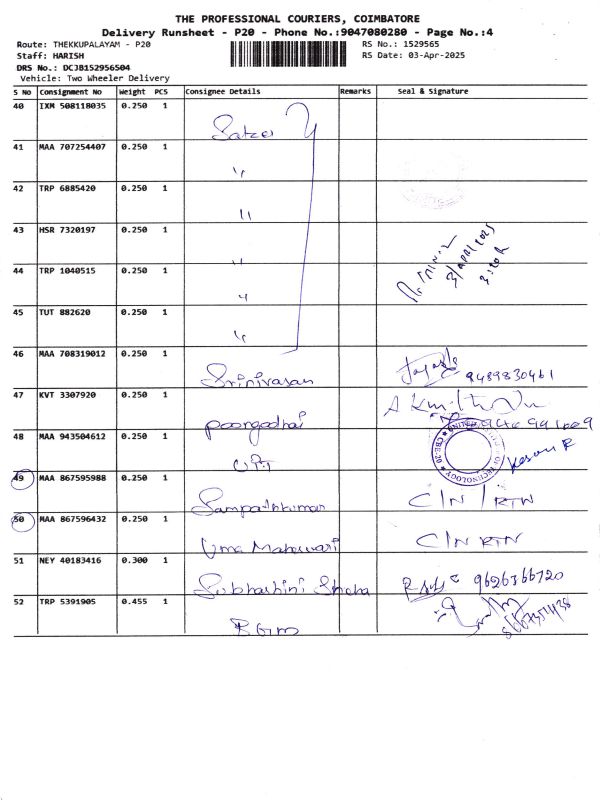 THE PROFESSIONAL COURIERS, COIMBATORE
Delivery Runsheet - P20 - Phone No.:9047080280 - Page No.:4
Route: THEKKUPALAYAM - P20 RS No.: 1529565
Staff: HARISH RS Date: 03-Apr-2025
DRS No.: DC3B152956504
Vehicle: Two Wheeler Delivery
S No Consignment No Weight PCS Consignee Details Remarks Seal & Signature
40 IXM 508118035 0.250 1
41 MAA 707254407 0.250 1 "
42 TRP 6885420 0.250 1 "
43 HSR 7320197 0.250 1 "
3/APRIL/2025
44 TRP 1040515 0.250 1 "
45 TUT 882620 0.250 1 "
46 MAA 708319012 0.250 1 Srinivasan 9489830461
47 KVT 3307920 0.250 1 Poongodhai
48 MAA 943504612 0.250 1 CBE-20
49 MAA 867595988 0.250 1 Sampathkumar C/N / RTN
50 MAA 867596432 0.250 1 Uma Maheswari C/N RTN
51 NEY 40183416 0.300 1 Subhashini 9626366720
52 TRP 5391905 0.455 1